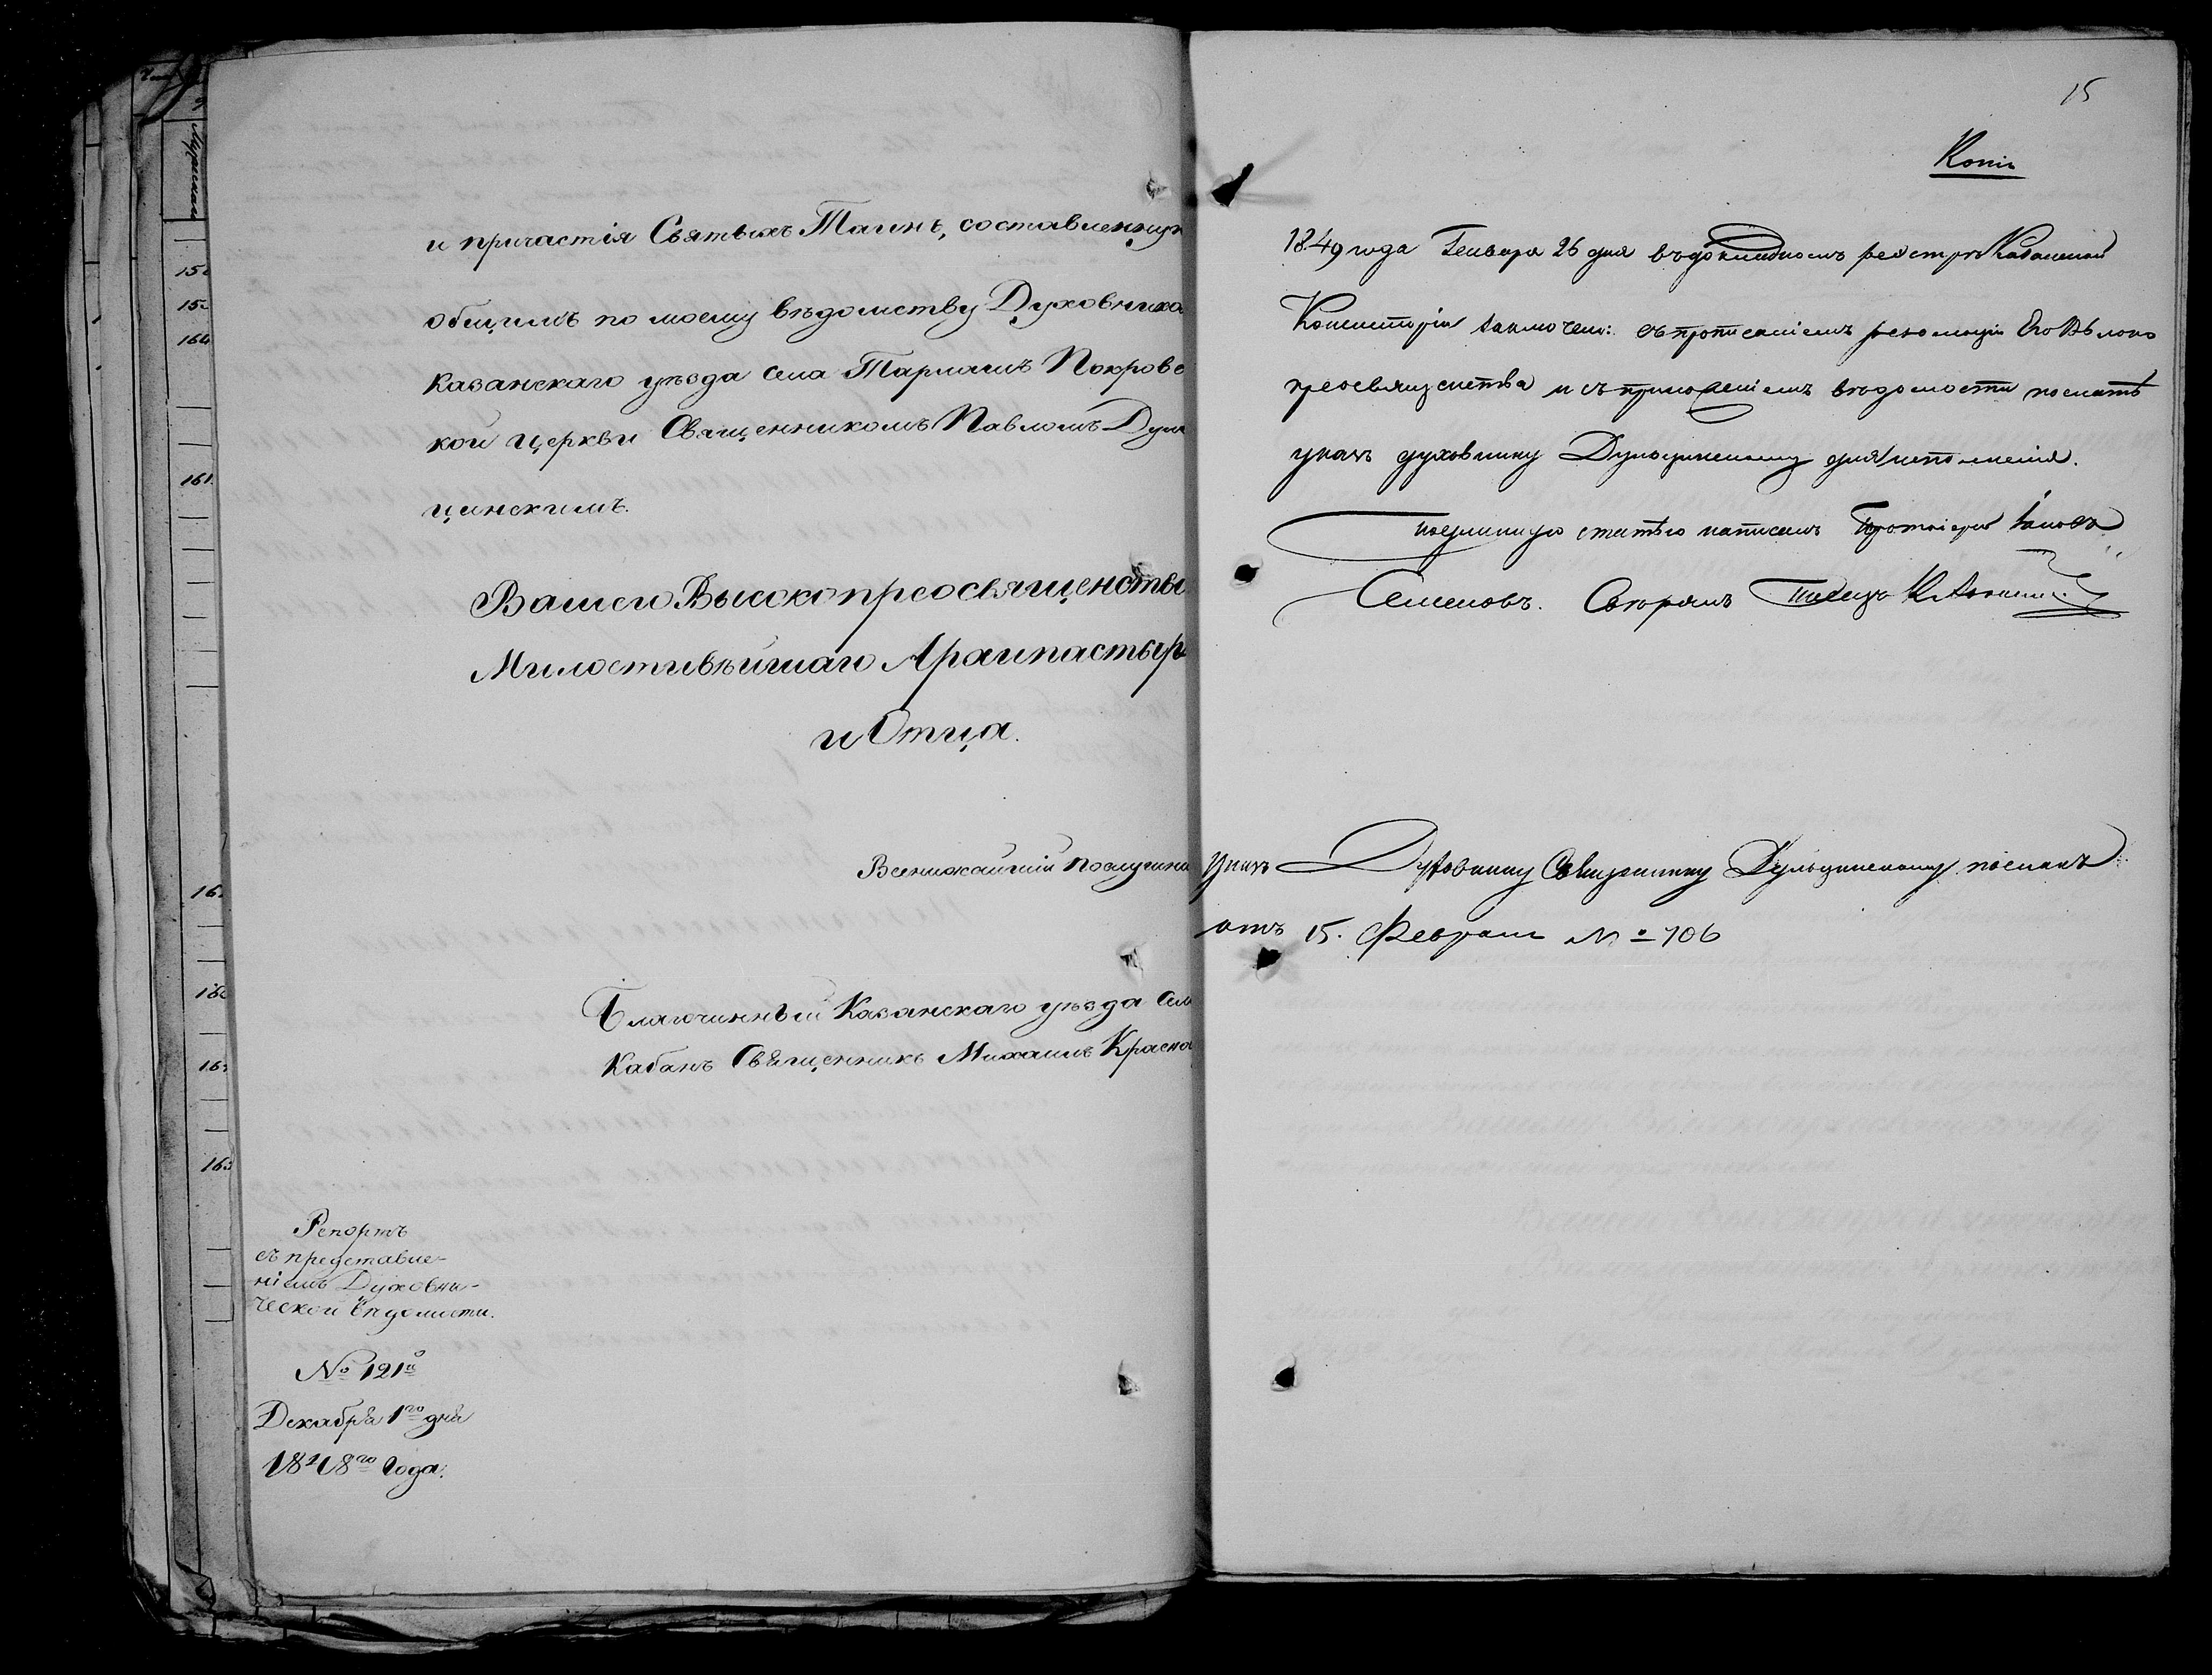 и причастія Святыхъ Таинъ, составленную
общимъ по моему вѣдомству Духовнико
Казанскаго уѣзда села Тарлашъ Покровс
кой церкви Священникомъ Павломъ Дуль
цинскимъ.
Вашего Высокопреосвященств
Милостивѣйшаго Архипастыр
и Отца.
Всенижайшій послушни
Благочинный Казанскаго уѣзда села
Кабанъ Священникъ Михаилъ Красно
Репортъ
съ представле-
ніемъ Духовни-
ческой вѣдомости.
№ 121й
Декабря 1го дня
1848го Года.
15
Копія
1849 года Генваря 26 дня въ докладномъ реестрѣ Казанской
Консисторіи заключено: съ прописаніемъ резолюціи Его Высоко
преосвященства и съ приложеніемъ вѣдомости послать
указъ духовнику Дульцинскому для исполненія.
Подлинную статью написалъ Протоіерей Іаковъ
Семеновъ. Свѣрялъ
Указъ Духовнику Священнику Дульцинскому посланъ
отъ 15. Февраля № 706